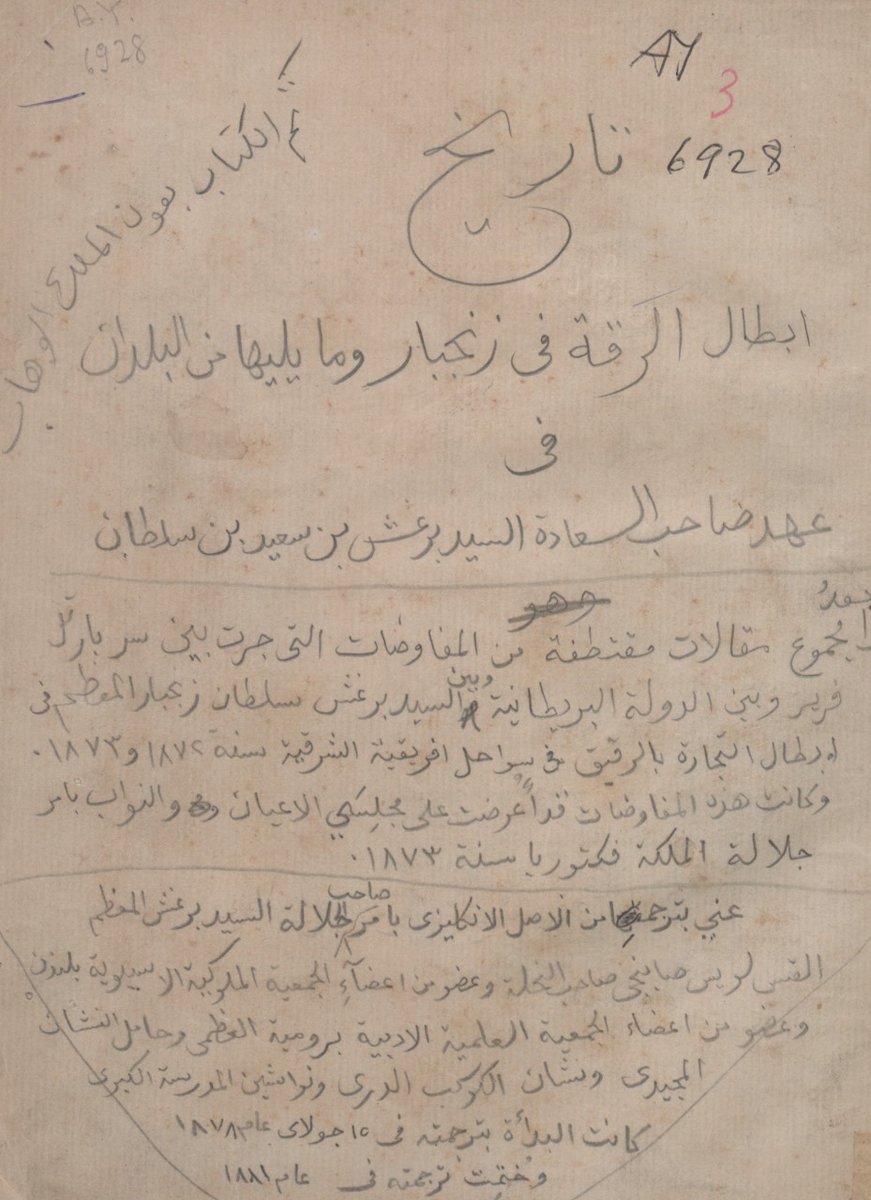 B.Y.
6928
AY
3
6928
تم الكتاب بعون الملك الوهاب
تاريخ
ابطال الرقة في زنجبار وما يليها من البلدان
فى
عهد صاحب السعادة السيد برغش بن سعيد بن سلطان
وهو
مجموع مقالات مقتطفة من المفاوضات التى جرت بين سر بارتل
فرير وبين الدولة البريطانية وبين السيد برغش سلطان زنجبار المعظم فى
ابطال التجارة بالرقيق فى سواحل افريقية الشرقية سنة ١٨٧٢ و ١٨٧٣.
وكانت هذه المفاوضات قد عرضت على مجلسي الاعيان والنواب بامر
جلالة الملكة فكتوريا سنة ١٨٧٣.
عني بترجمتها من الاصل الانكليزى بامر صاحب الجلالة السيد برغش المعظم
القس لويس صابنجى صاحب النحلة وعضو من اعضآءِ الجمعية الملوكية الاسيوية بلندن
وعضو من اعضاء الجمعية العلمية الادبية برومية العظمى وحامل النشان
المجيدى ونشان الكوكب الدرى ونواشين المدرسة الكبرى
كانت البدأة بترجمته فى ١٥ جولاى عام ١٨٧٨
وخُتِمت ترجمته فى عام ١٨٨١